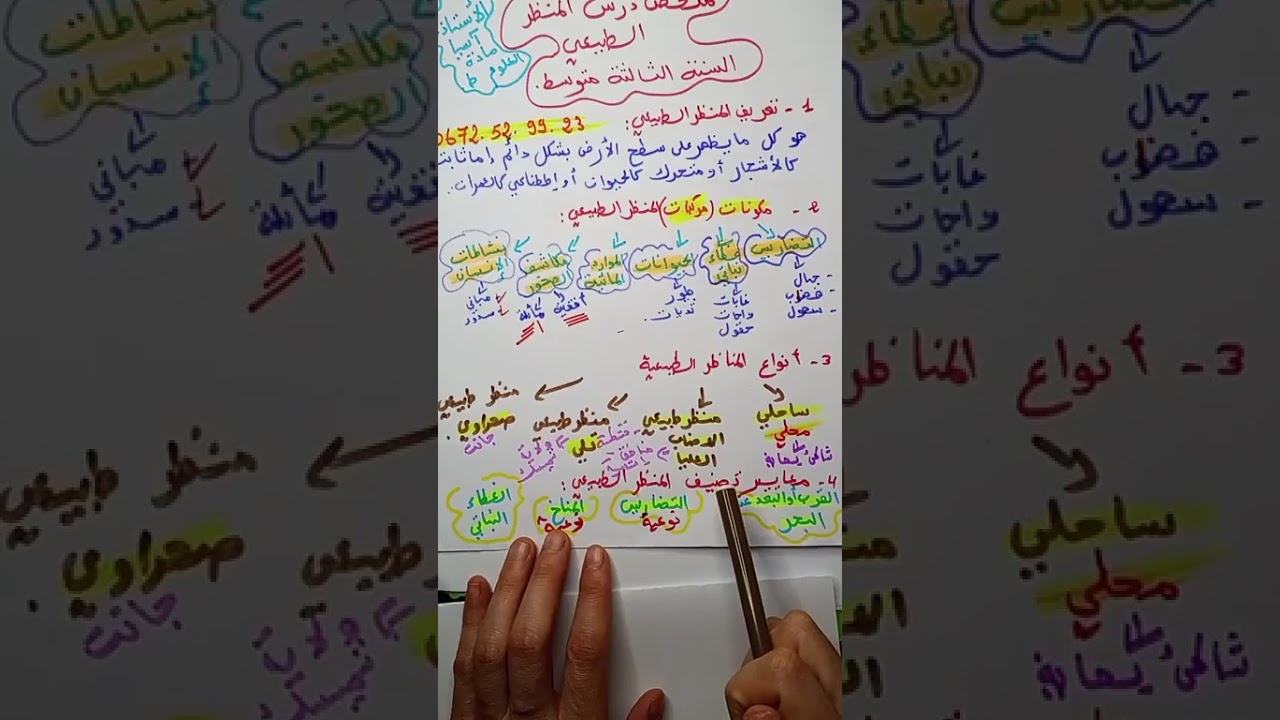 ملخص درس المنظر
الطبيعي
السنة الثالثة متوسط.
الأستاذة
مادة
العلوم ط
1 - تعريف المنظر الطبيعي:
0672.52.99.23
هو كل ما يظهر على سطح الأرض بشكل دائم إما ثابت
كالأشجار أو متحرك كالحيوان أو إصطناعي كالعمران.
2 - مكونات (مركبات) المنظر الطبيعي:
التضاريس
غطاء نباتي
الحيوانات
الموارد المائية
مكاشف الصخور
نشاطات الإنسان
- جبال
- هضاب
- سهول
غابات
واحات
حقول
طيور
ثدييات.
أفقية
مائلة
مباني
سدود
3 - أنواع المناظر الطبيعية
ساحلي
محلي
منظر طبيعي
الهضاب
العليا
منظر طبيعي
تلي
منظر طبيعي
صحراوي.
جانت
4 - معايير تصنيف المنظر الطبيعي:
القرب أو البعد عن
البحر
التضاريس
نوعية
المناخ
نوعية
الغطاء
النباتي